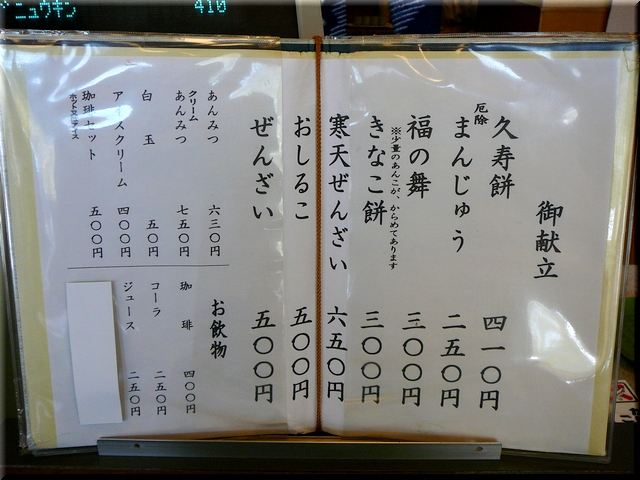 ニュウキン 410
御献立
久寿餅 四一〇円
厄除
まんじゅう 二五〇円
福の舞 三〇〇円
※少量のあんこが、からめてあります
きなこ餅 三〇〇円
寒天ぜんざい 六五〇円
おしるこ 五〇〇円
ぜんざい 五〇〇円
あんみつ 六三〇円
クリーム
あんみつ 七五〇円
白玉 五〇円
アイスクリーム 四〇〇円
珈琲セット 五〇〇円
お飲物
珈琲 四〇〇円
コーラ 二五〇円
ジュース 二五〇円